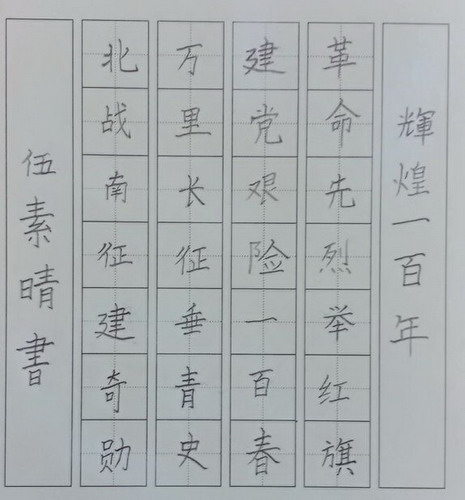 輝煌一百年
革命先烈举红旗
建党艰险一百春
万里长征垂青史
北战南征建奇勋
伍素晴書